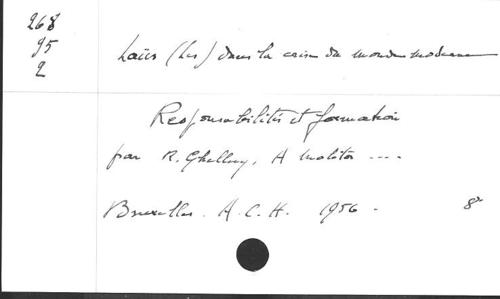 268
95
2
Laïcs (Les) dans la crise du monde moderne
Responsabilités et formation
par R. Ghellney, A Molitor ....
Bruxelles. A.C.H. 1956. 8°